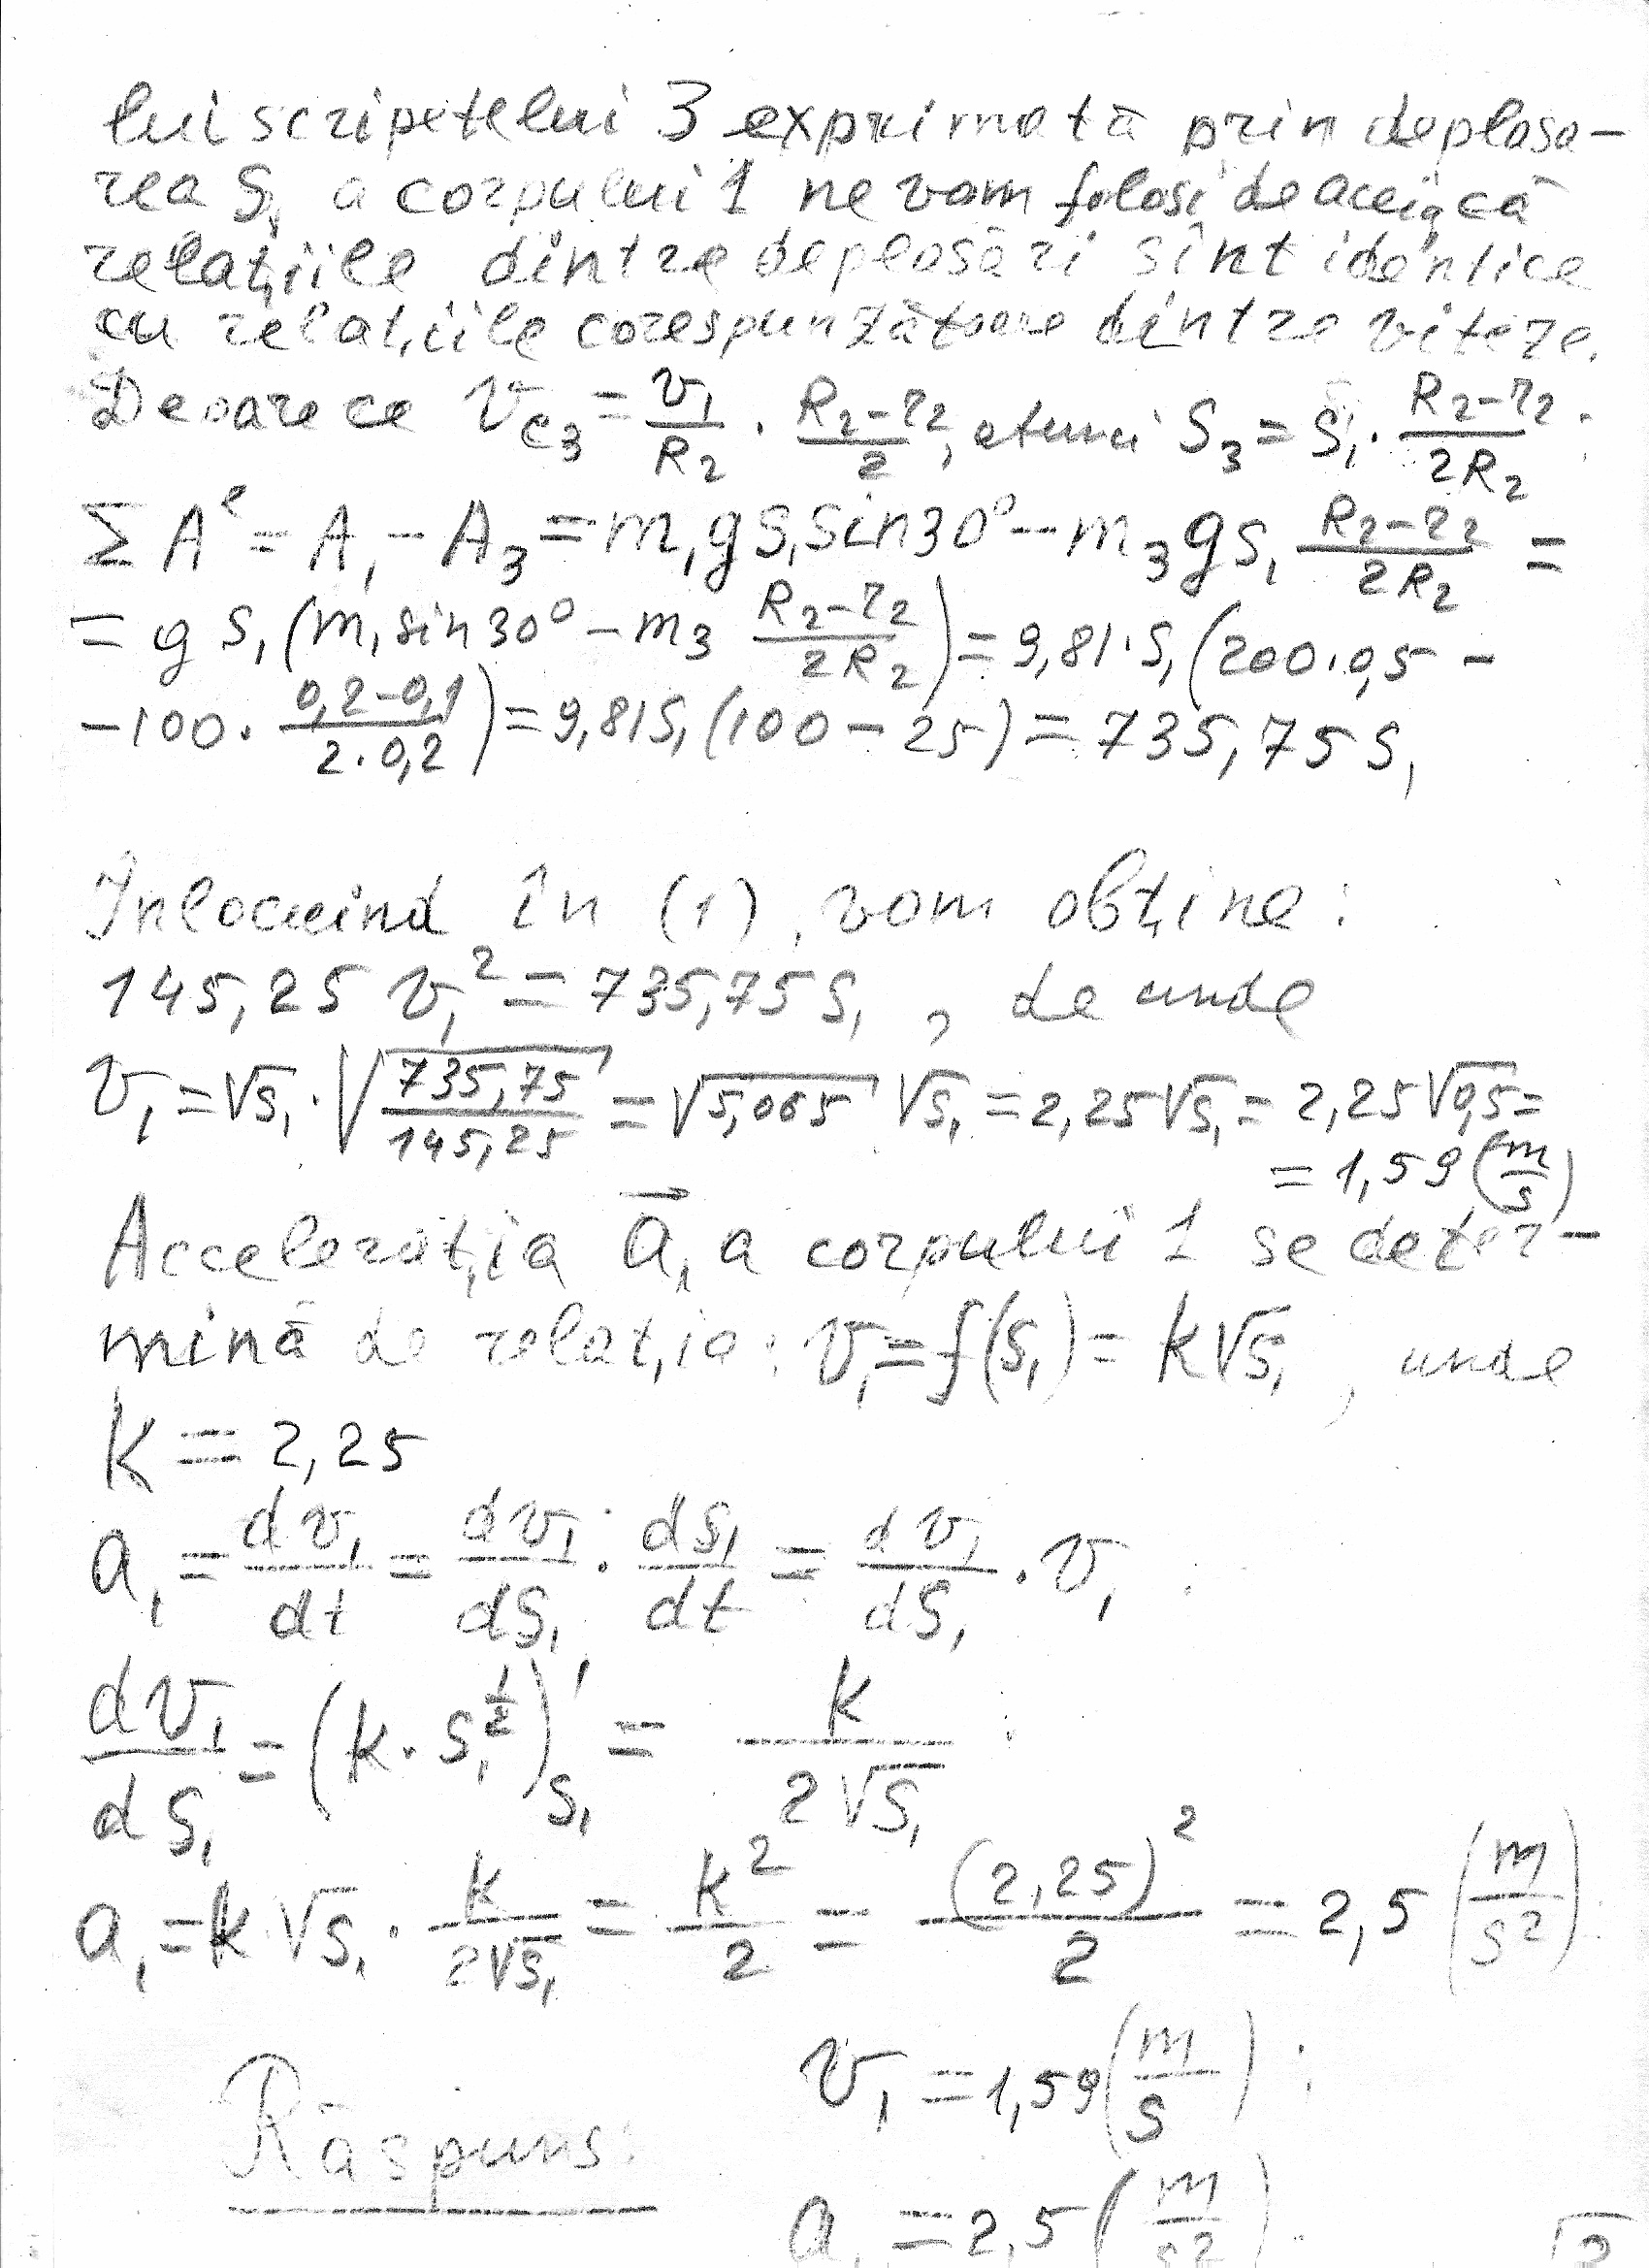 lui scripetelui 3 exprimată prin deplasa-
rea S₁ a corpului 1 ne vom folosi de aceia că
relațiile dintre deplasări sînt identice
cu relațiile corespunzătoare dintre viteze.
Deoarece v_{C3} = v₁/R₂ · (R₂-r₂)/2, atunci S₃ = S₁ · (R₂-r₂)/(2R₂);
ΣAᵉ = A₁ - A₃ = m₁gs₁sin30° - m₃gs₁ (R₂-r₂)/(2R₂) =
= gs₁(m₁sin30° - m₃ (R₂-r₂)/(2R₂)) = 9,81·S₁(200·0,5 -
- 100 · (0,2-0,1)/(2·0,2)) = 9,81S₁(100-25) = 735,75 S₁
Înlocuind în (1), vom obține:
145,25 v₁² = 735,75 S₁, de unde
v₁ = √S₁ · √(735,75/145,25) = √5,065 √S₁ = 2,25√S₁ = 2,25√0,5 =
= 1,59 (m/s)
Accelerația a⃗₁ a corpului 1 se deter-
mină de relația: v₁ = f(s₁) = k√s₁, unde
k = 2,25
a₁ = dv₁/dt = dv₁/dS₁ · dS₁/dt = dv₁/dS₁ · v₁;
dv₁/dS₁ = (k · s₁^{1/2})'_{S₁} = k/(2√S₁);
a₁ = k√S₁ · k/(2√S₁) = k²/2 = (2,25)²/2 = 2,5 (m/s²).
v₁ = 1,59 (m/s);
Răspuns:
a₁ = 2,5 (m/s²).